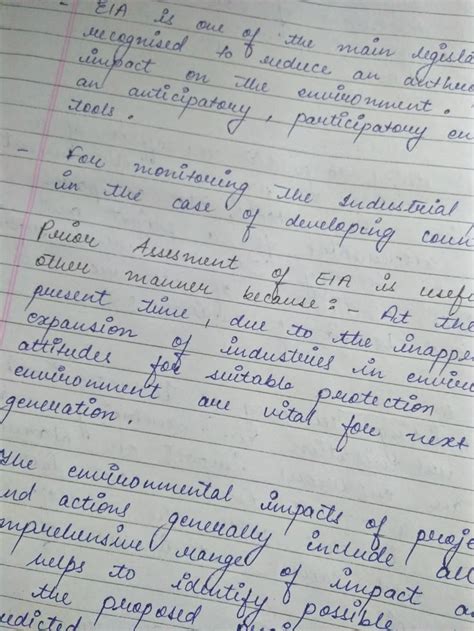 - EIA is one of the main legisla
recognised to reduce an anthro
impact on the environment.
an anticipatory, participatory en
tools.
- For monitoring the industrial,
in the case of developing coun
Prior Assesment of EIA is usef
other manner because:- At the
present time, due to the inappr
expansion of industries in enviro
attitudes for suitable protection
environment are vital for next
generation.
The environmental impacts of proje
and actions generally include all
mprehensive range of impact a
helps to identify possible
the proposed
edicted